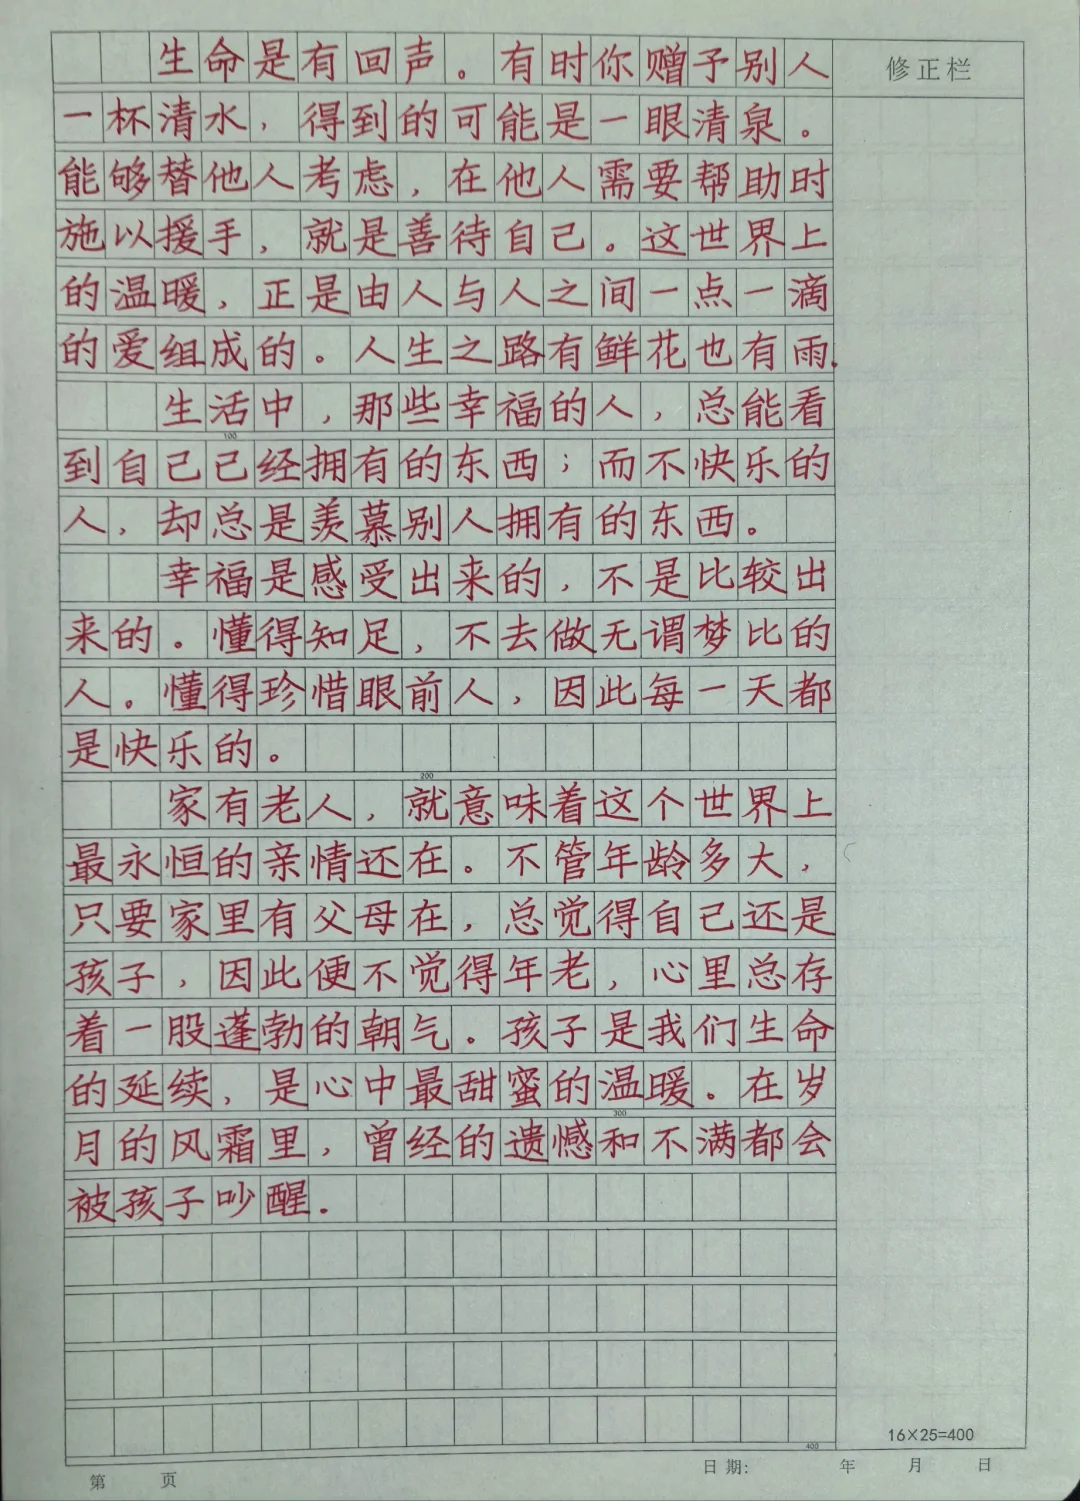 生命是有回声。有时你赠予别人
修正栏
一杯清水，得到的可能是一眼清泉。
能够替他人考虑，在他人需要帮助时
施以援手，就是善待自己。这世界上
的温暖，正是由人与人之间一点一滴
的爱组成的。人生之路有鲜花也有雨.
生活中，那些幸福的人，总能看
100
到自己己经拥有的东西；而不快乐的
人，却总是羡慕别人拥有的东西。
幸福是感受出来的，不是比较出
来的。懂得知足，不去做无谓梦比的
人。懂得珍惜眼前人，因此每一天都
是快乐的。
200
家有老人，就意味着这个世界上
最永恒的亲情还在。不管年龄多大，
只要家里有父母在，总觉得自己还是
孩子，因此便不觉得年老，心里总存
着一股蓬勃的朝气。孩子是我们生命
的延续，是心中最甜蜜的温暖。在岁
300
月的风霜里，曾经的遗憾和不满都会
被孩子吵醒.
400
16×25=400
第 页
日期: 年 月 日